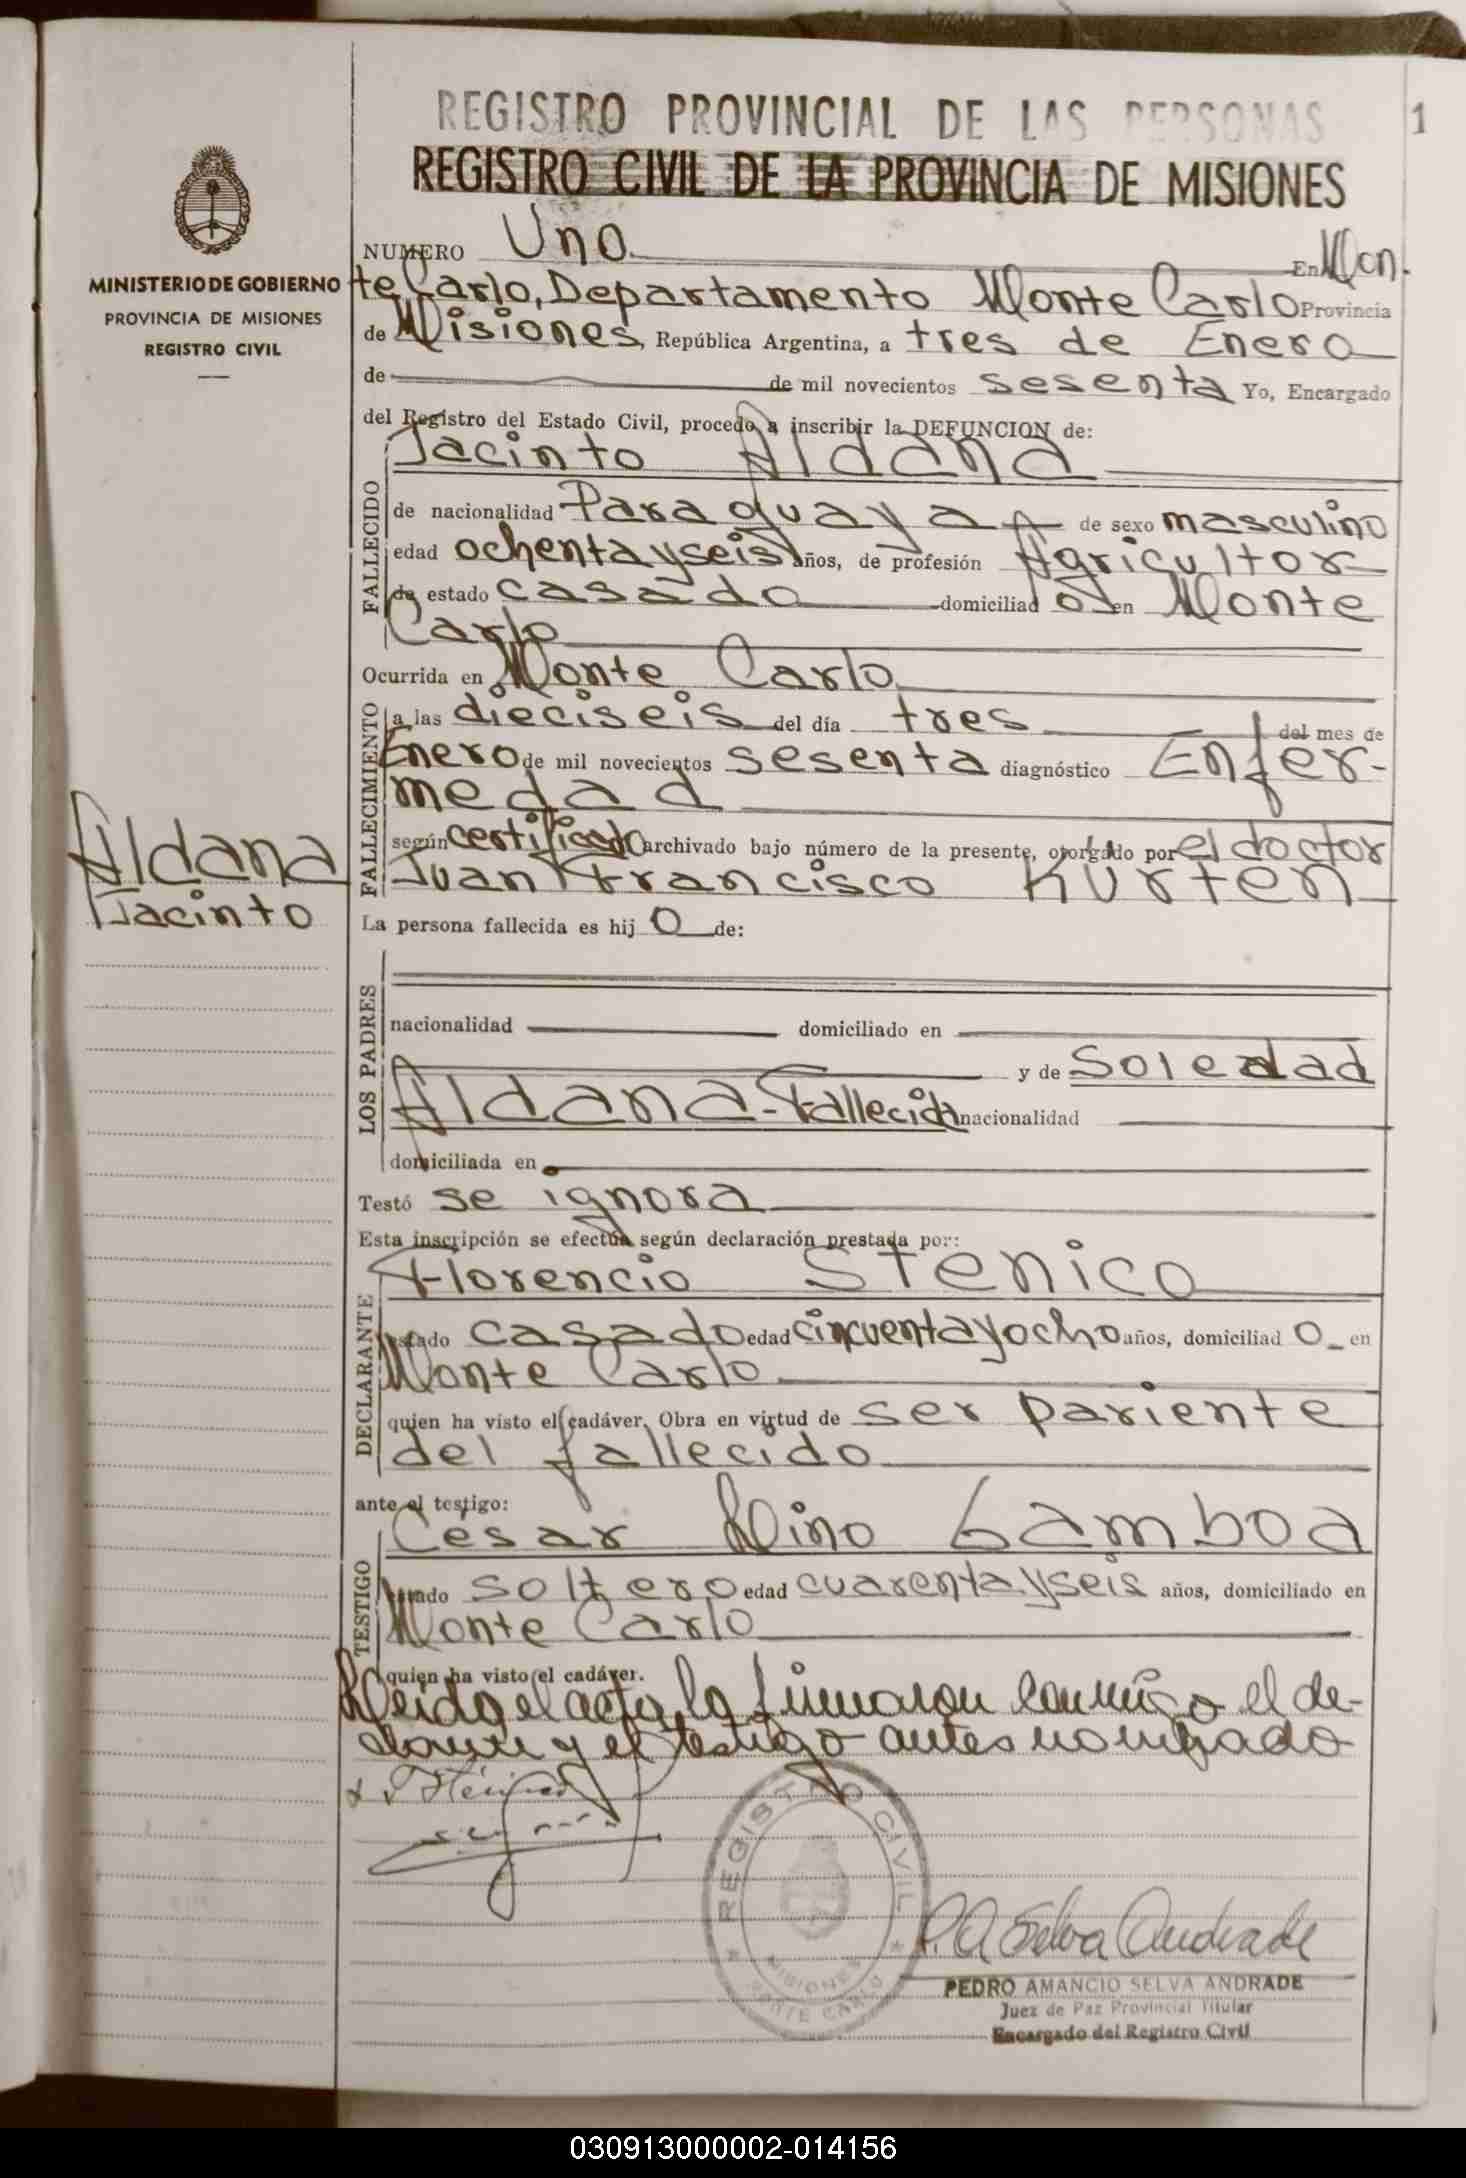 REGISTRO PROVINCIAL DE LAS PERSONAS
1
REGISTRO CIVIL DE LA PROVINCIA DE MISIONES
MINISTERIO DE GOBIERNO
PROVINCIA DE MISIONES
REGISTRO CIVIL
NUMERO Uno En Mon.
te Carlo, Departamento Monte Carlo Provincia
de Misiones, República Argentina, a tres de Enero
de de mil novecientos sesenta Yo, Encargado
del Registro del Estado Civil, procedo a inscribir la DEFUNCION de:
Jacinto Aldana
FALLECIDO
de nacionalidad Paraguaya de sexo masculino
edad ochenta y seis años, de profesión Agricultor
de estado casado domiciliado en Monte
Carlo
Ocurrida en Monte Carlo
FALLECIMIENTO
a las dieciseis del día tres del mes de
Enero de mil novecientos sesenta diagnóstico Enfer-
medad
según certificado archivado bajo número de la presente, otorgado por el doctor
Juan Francisco Kurten
Aldana
Jacinto
La persona fallecida es hij o de:
LOS PADRES
nacionalidad domiciliado en
y de Soledad
Aldana-Fallecida nacionalidad
domiciliada en
Testó se ignora
Esta inscripción se efectúa según declaración prestada por:
Florencio Stenico
DECLARANTE
estado casado edad cincuenta y ocho años, domiciliad o en
Monte Carlo
quien ha visto el cadáver. Obra en virtud de ser pariente
del fallecido
ante el testigo:
César Lino Gamboa
TESTIGO
estado soltero edad cuarenta y seis años, domiciliado en
Monte Carlo
quien ha visto el cadáver.
Leida el acta, la firmaron conmigo el de-
clarante y el testigo antes nombrado
REGISTRO CIVIL
MISIONES
MONTE CARLO
P. A. Selva Andrade
PEDRO AMANCIO SELVA ANDRADE
Juez de Paz Provincial Titular
Encargado del Registro Civil
030913000002-014156